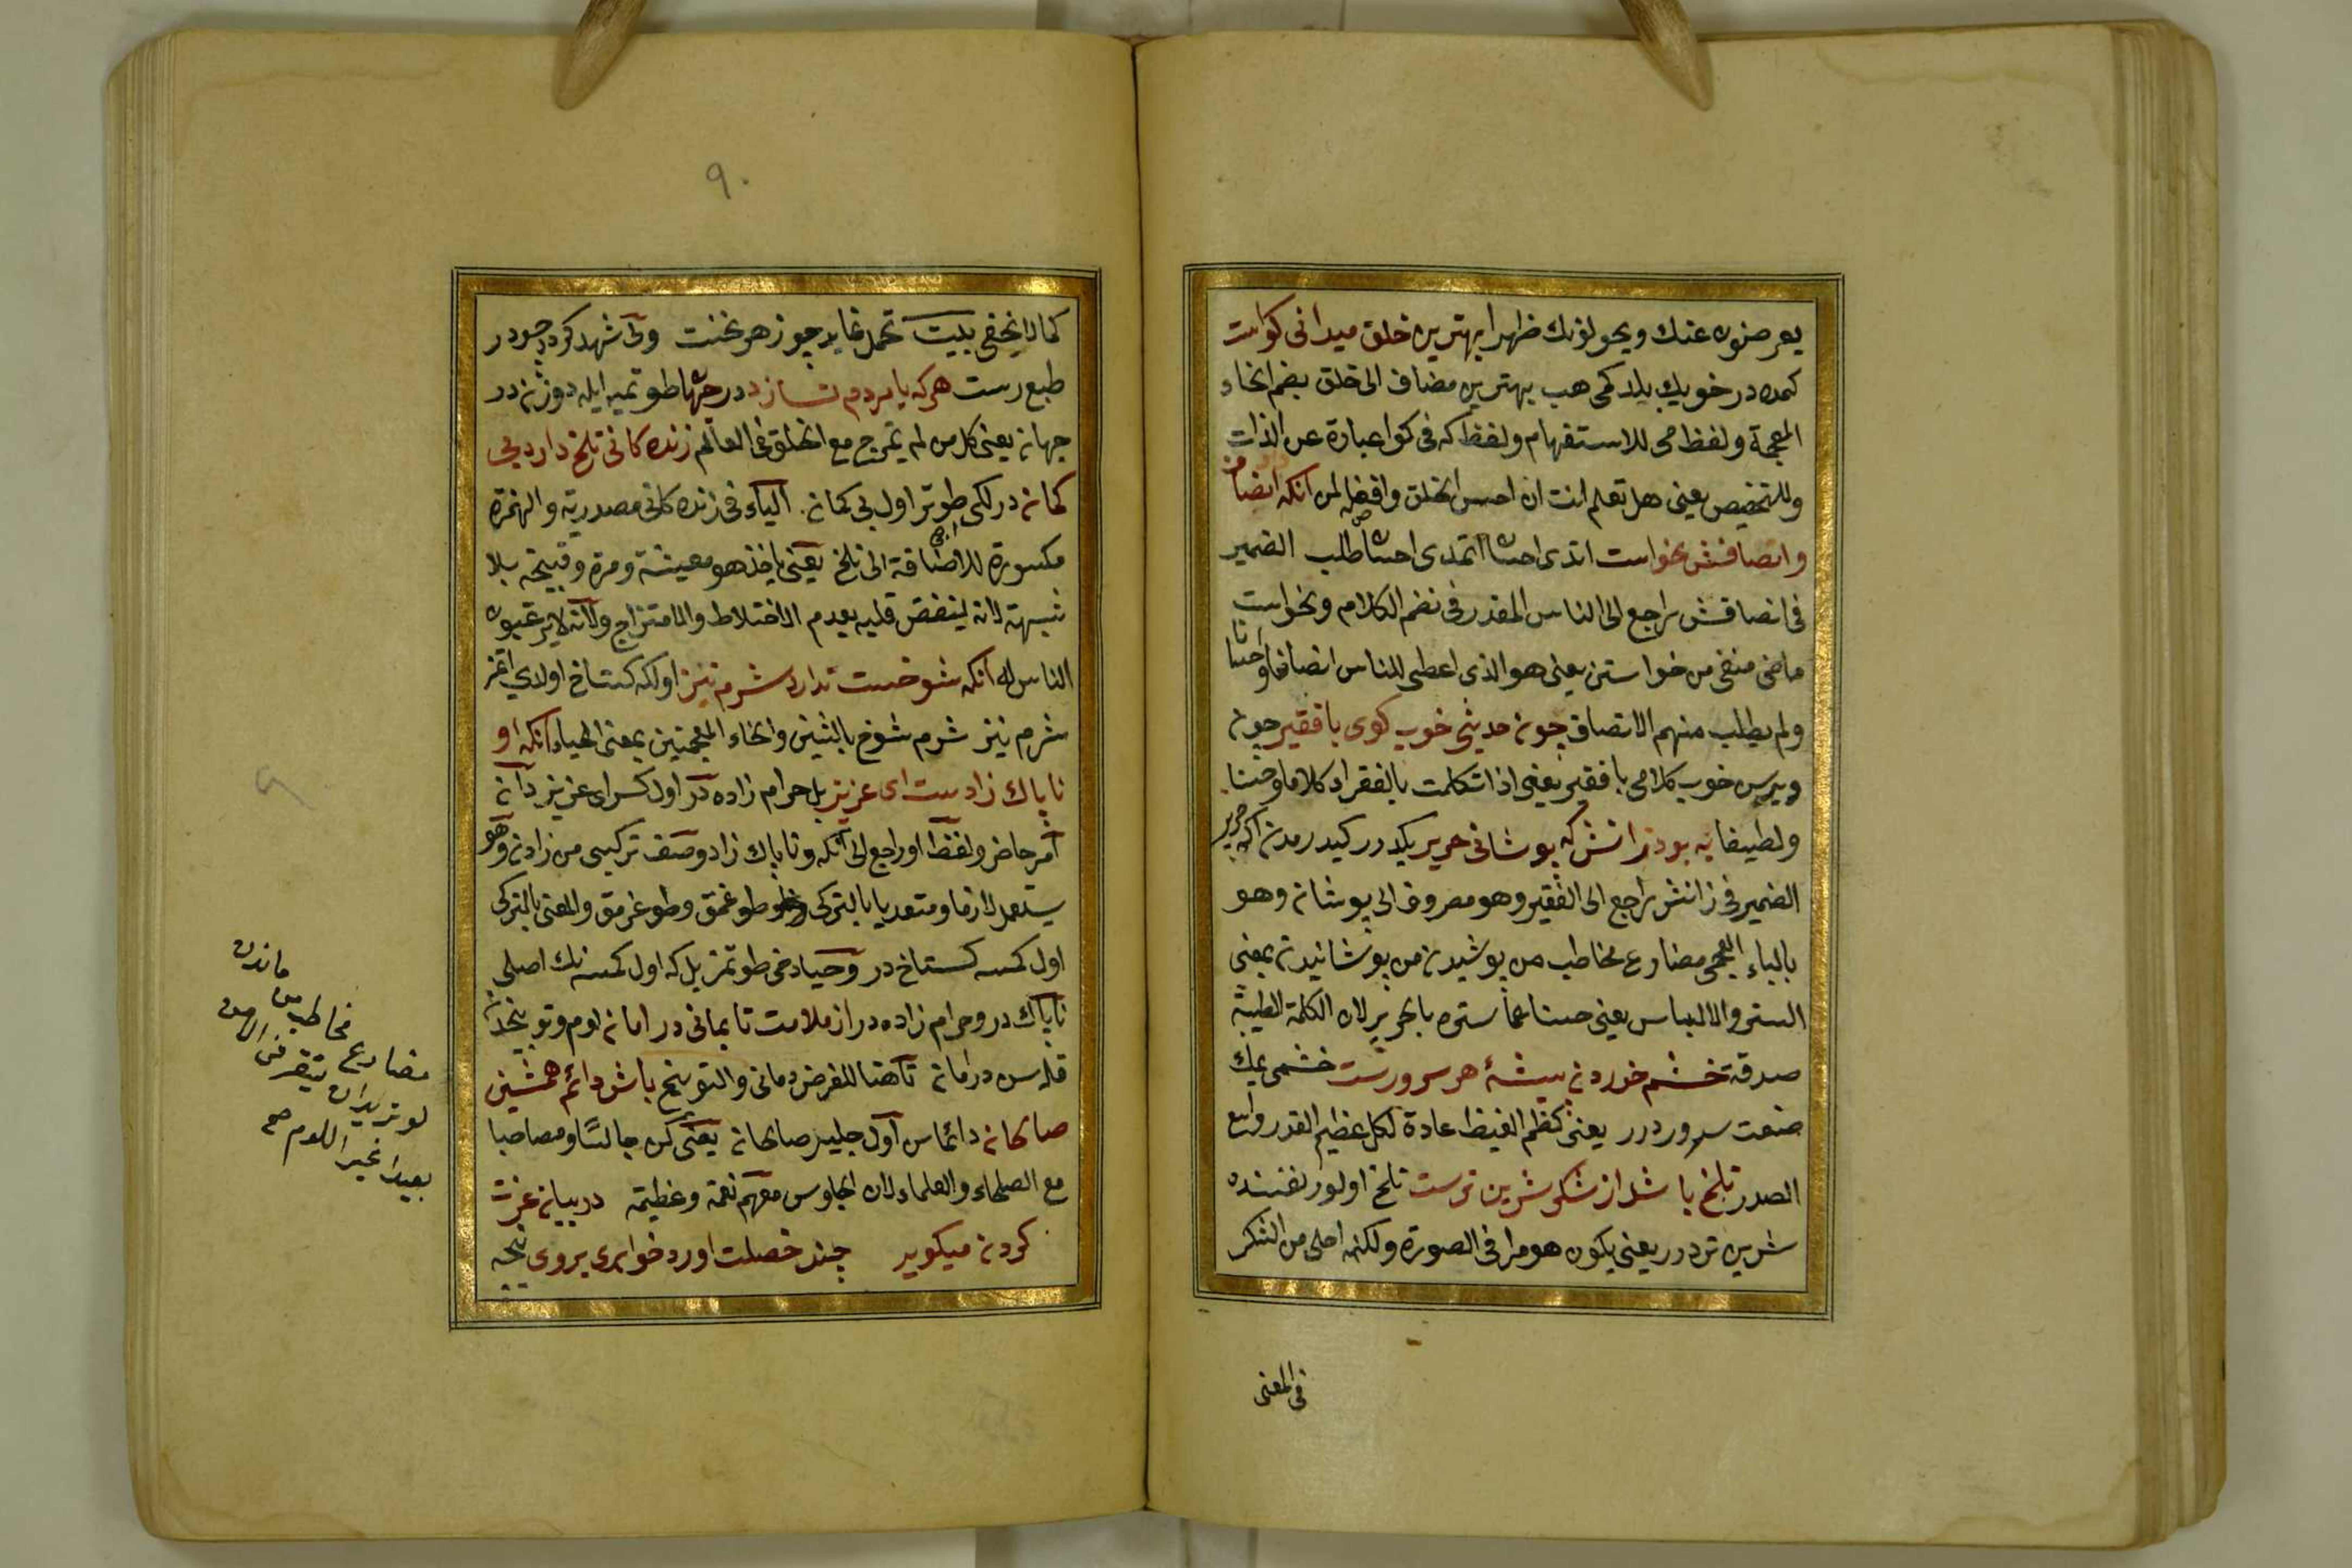 يعرضون عنك ويحولونك ظهرا بهترين خلق ميدانى كواست
كمده در خويك بيلدكمى هب بهترين مضاف الى خلق بضم الخاء
المعجمة ولفظ مى للاستفهام ولفظ كه فى كوا عبارة عن الذات
وللتخصيص يعنى هل تعلم انت ان احسن الخلق وافضله من آنكه انصاف
وانصافش نخواست اتدى احسا اتمدى احسا طلب الضمير
فى انصافش راجع الى الناس المقدر فى نضم الكلام ونخواست
ماضى منفى من خواستن يعنى هو الذى اعطى للناس انصافا واحسانا
ولم يطلب منهم الانصاف چون حديثى خوب كوى با فقير چون
ويرسن خوب كلامى با فقير يعنى اذا تكلمت بالفقراء كلاما وحسنا
ولطيفا به بود زانش كه پوشانى حرير يكدر كيدرمدن اكه حرير
الضمير فى زانش راجع الى الفقير وهو مصروف الى پوشان وهو
بالباء العجمى مضارع مخاطب من پوشيدن من پوشانيدن بمعنى
الستر والالباس يعنى حسنا عما ستره بالحرير لان الكلمة الطيبة
صدقة خشم خوردن پيشۀ هر سرورست خشمى يمك
صنعت سروردر يعنى كظم الغيظ عادة لكل عظيم القدر واسع
الصدر تلخ باشد از شكر شرين ترست تلخ اولور نفسنده
شرين تردر يعنى يكون هو مرا فى الصورة ولكنه احلى من الشكر
فى المعنى
٩٠
كما لا يخفى بيت تحمل نمايد چو زهر نخست ولى شهد كردد چو در
طبع رست هركه با مردم نسازد در جهان طوتميه ايله دوزن در
جهان يعنى كل من لم يمرج مع الخلق فى العالم زنده كانى تلخ دارد بى
كمان درلكى طوتر اول بى كمان الياء فى زنده كانى مصدرية والهمزة
مكسورة للاضافة الى تلخ يعنى ياخذ هو معيشة ومرة وقبيحة بلا
شبهة لانه لينقض قلبه بعدم الاختلاط والامتزاج ولانه لا يرغبون
الناس له آنكه شوخست ندارد شرم نيز اولكه كستاخ اولدى اتمز
شرم نيز شرم شوخ بالشين والخاء المعجمتين بمعنى الحياء آنكه او
ناپاك زادست اى عزيز بل حرام زاده در اول كس اى عزيز دان
امر حاضر ولفظ او راجع الى آنكه وناپاك زاد وصف تركيبى من زادن وهو
يستعمل لازما ومتعديا بالتركى طوغمق وطوغرمق والمعنى بالتركى
اول كمسه كستاخ در وحيا دخى طوتمز بل كه اول كمسه نك اصلى
ناپاك در وحرام زاده در از ملامت تا بمانى در امان لوم وتوبيخدن
قله سن در امان تا هنا للغرض دمانى والتوبيخ باش دائم همنشين
صالحان دائما سن اول جليس صالحان يعنى كن جالسا ومصاحبا
مع الصلحاء والعلماء لان الجلوس معهم نعمة وعظيمة در بيان عزت
كردن ميكويد چند خصلت اورد خوارى بروى نيجه
ماندن
مخاطب من
مضارع
لوم
بعيدا غير اللوم صح